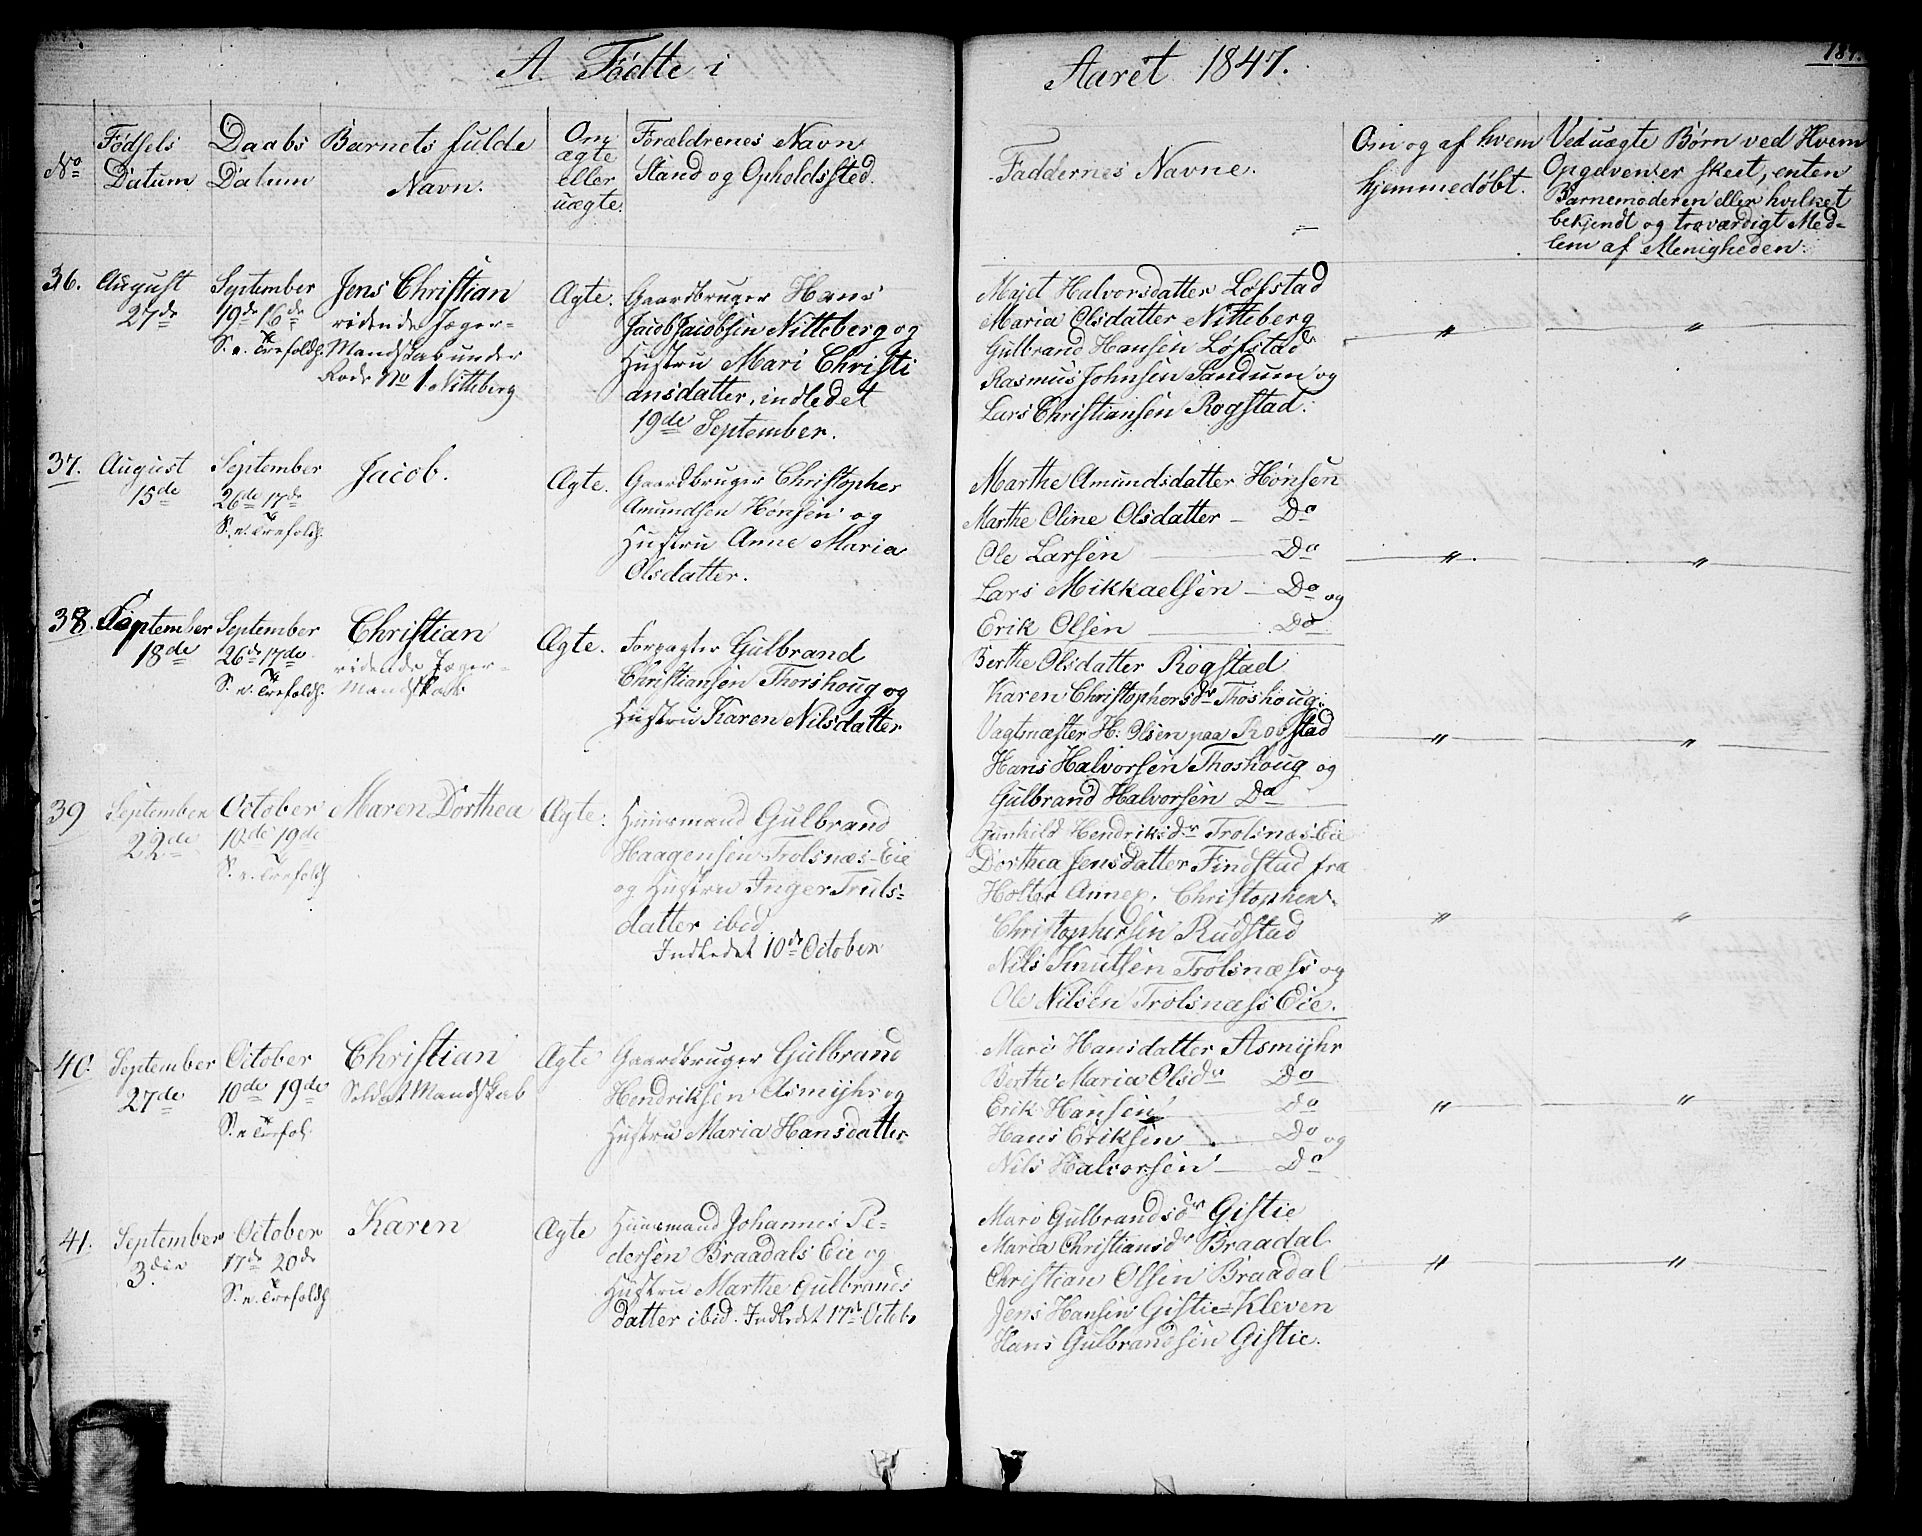 A Födte i Aaret 1847.
No
Födsels Datum
Daabs Datum
Barnets fulde Navn.
Om ægte eller uægte.
Forældrenes Navn
Stand og Opholdssted.
Faddernes Navne.
Om og af hvem
hjemmedöbt.
Ved uægte Börn ved Hvem
Opgaven er skeet, enten
Barnemoderen eller hvilket
bekjendt og troværdigt Med-
lem af Menigheden.
36.
August
27de
September
19de 16de
S. e. Trefoldh.
Jens Christian
ridende Jæger-
Mandskab under
Rode No 1 Nitteberg
Ægte.
Gaardbruger Hans
Jacob Jacobsen Nitteberg og
Hustru Mari Christi
ansdatter, indledet
19de September.
Majet Halvorsdatter Löfstad
Maria Olsdatter Nitteberg
Gulbrand Hansen Löfstad
Rasmus Johnsen Sandum og
Lars Christiansen Rogstad.
"
"
37.
August
15de
September
26de 17de
S. e. Trefoldh.
Jacob.
Ægte.
Gaardbruger Christopher
Amundsen Hönsen og
Hustru Anne Maria
Olsdatter.
Marthe Amundsdatter Hönsen
Marthe Oline Olsdatter - Do
Ole Larsen - Do
Lars Mikkaelsen - Do og
Erik Olsen - Do
"
"
38.
September
18de
September
26de 17de
S. e. Trefoldh.
Christian
ridende Jæger-
Mandskab.
Ægte.
Forpagter Gulbrand
Christiansen Thorshoug og
Hustru Karen Nilsdatter
Berthe Olsdatter Rogstad
Karen Christophersdr Thoshoug.
Vagtmester H: Olsen paa Rogstad
Hans Halvorsen Thoshoug og
Gulbrand Halvorsen Do
"
"
39
September
22de
October
10de 19de
S. e. Trefoldh
Maren Dorthea
Ægte.
Huusmand Gulbrand
Haagensen Trolsnæs-Eie
og Hustru Inger Truls-
datter ibid.
Indledet 10de October
Gunhild Hendriksdr Trolsnæs-Eie
Dorthea Jensdatter Findstad fra
Holter Annex. Christopher
Christophersen Rudstad
Nils Knutsen Trolsnæss og
Ole Nilsen Trolsnæss Eie.
"
"
40.
September
27de
October
10de 19de
S. e Trefol.
Christian
Soldat Mandskab
Ægte
Gaardbruger Gulbrand
Hendriksen Asmyhr og
Hustru Maria Hansdatter
Mari Hansdatter Asmyhr
Berthe Maria Olsdr Do
Erik Hansen Do
Hans Eriksen - Do og
Nils Halvorsen - Do
"
"
41.
September
3die
October
17de 20de
S. e. Trefoldh
Karen
Ægte
Huusmand Johannes Pe-
dersen Braadals Eie og
Hustru Marthe Gulbrands
datter ibid. Indledet 17de Octobr
Mari Gulbrandsdr Gistie
Maria Christiansdr Braadal
Christian Olsen Braadal
Jens Hansen Gistie-Kleven
Hans Gulbrandsen Gistie.
"
"